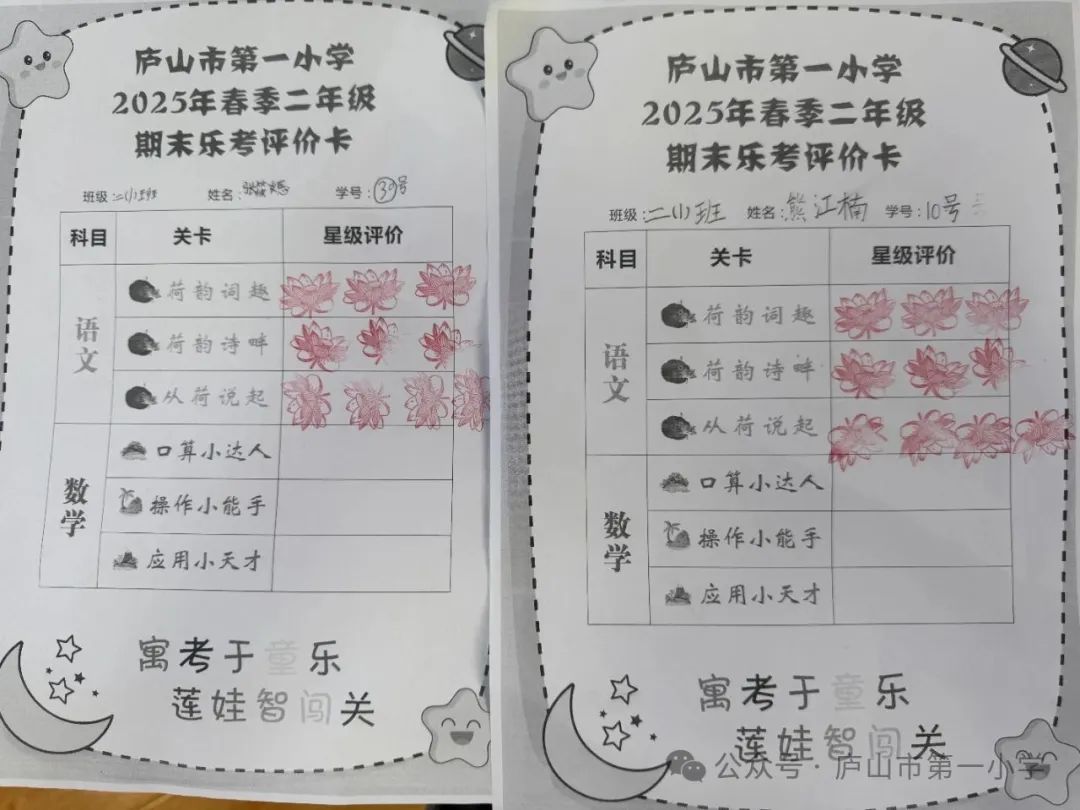 庐山市第一小学
2025年春季二年级
期末乐考评价卡
班级：二(1)班 姓名： 学号：39号
科目 关卡 星级评价
语文
荷韵词趣
荷韵诗畔
从荷说起
数学
口算小达人
操作小能手
应用小天才
寓考于童乐
莲娃智闯关
庐山市第一小学
2025年春季二年级
期末乐考评价卡
班级：二(1)班 姓名：熊江楠 学号：10号
科目 关卡 星级评价
语文
荷韵词趣
荷韵诗畔
从荷说起
数学
口算小达人
操作小能手
应用小天才
寓考于童乐
莲娃智闯关
公众号·庐山市第一小学